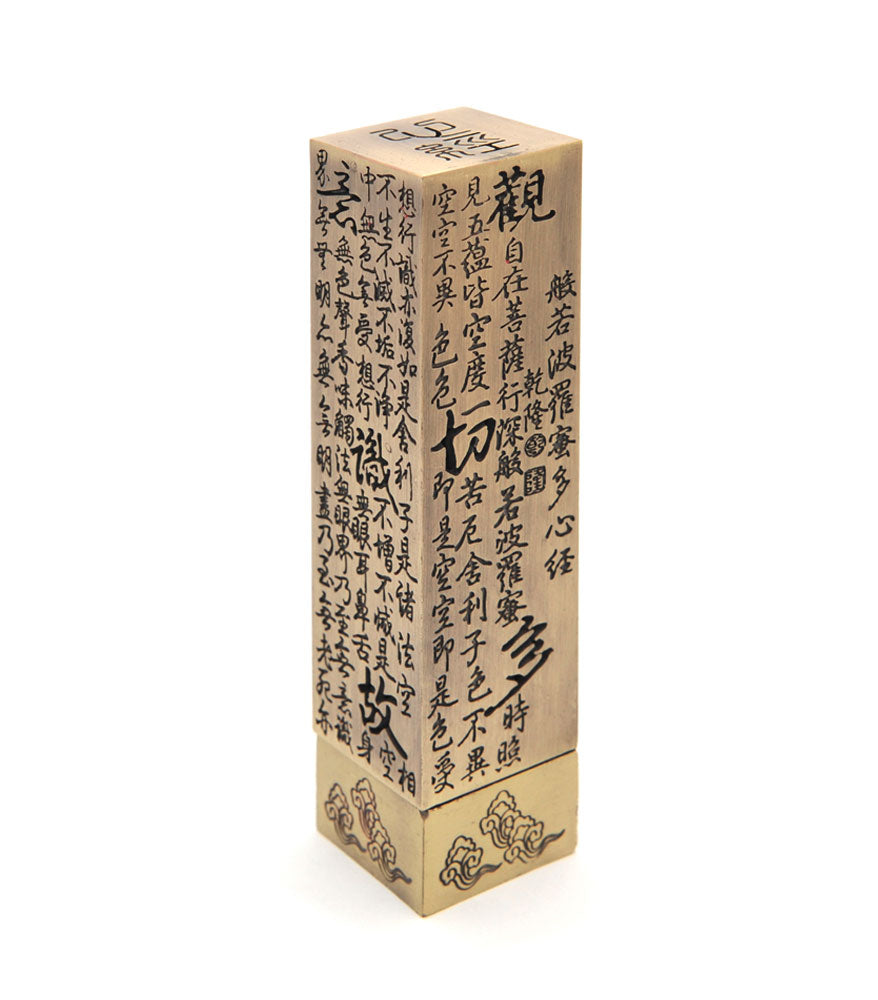 般若波羅蜜多心経
乾隆
觀自在菩薩行深般若波羅蜜多時照
見五蘊皆空度一切苦厄舍利子色不異
空空不異色色即是空空即是色受
想行識亦復如是舍利子是諸法空相
不生不滅不垢不淨不增不減是故空
中無色無受想行識無眼耳鼻舌身
意無色聲香味觸法無眼界乃至無意識
界無無明亦無無明盡乃至無老死亦